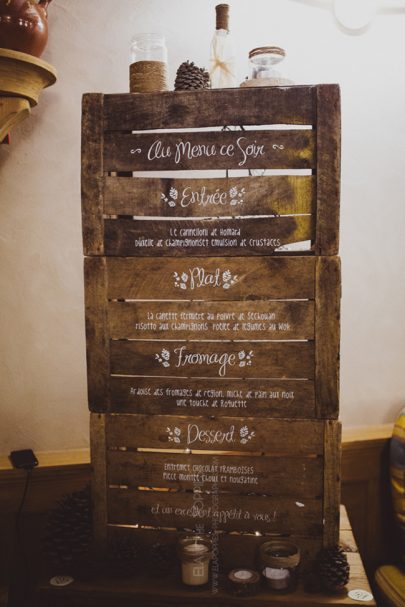 Au Menu ce Soir
Entrée
Le cannelloni de Homard
Duxelle de champignons et emulsion de crustaces
Plat
La canette fermière au poivre de Sechouan
risotto aux champignons poêlée de legumes au Wok
Fromage
Ardoise des fromages de region, miche de pain aux noix
une touche de Roquette
Dessert
Entremet chocolat framboises
Piece montée choux et nougatine
et un excellent appétit à vous !